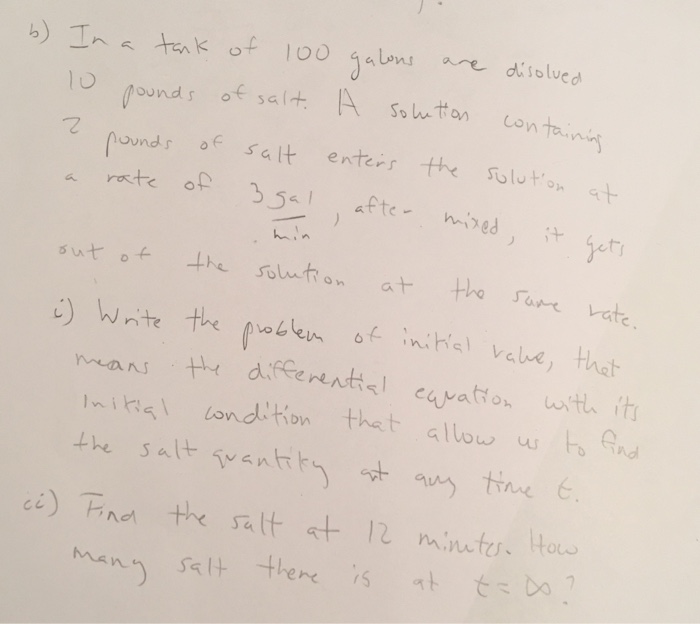 b) In a tank of 100 galons are disolved
10 pounds of salt. A solution containing
2 pounds of salt enters the solution at
a rate of 3 gal/min, after mixed, it gets
out of the solution at the same rate.
i) Write the problem of initial value, that
means the differential equation with its
Initial condition that allow us to find
the salt quantity at any time t.
ii) Find the salt at 12 minutes. How
many salt there is at t = ∞?